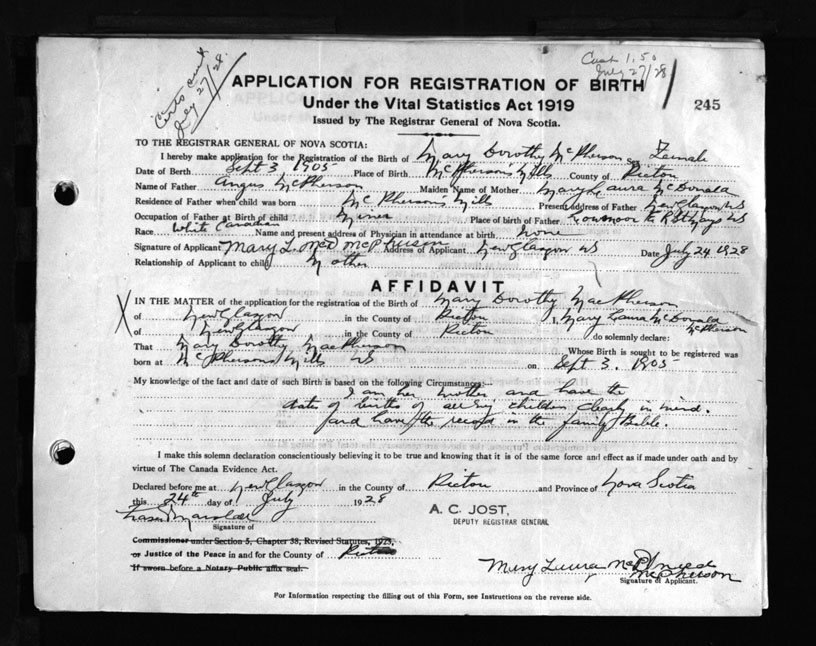 Certs sent
July 27/28.
Cash 1.50
July 27/28
APPLICATION FOR REGISTRATION OF BIRTH
245
Under the Vital Statistics Act 1919
Issued by The Registrar General of Nova Scotia.
TO THE REGISTRAR GENERAL OF NOVA SCOTIA:
I hereby make application for the Registration of the Birth of Mary Dorothy McPherson Sex Female
Date of Birth Sept 3 1905 Place of Birth McPhersons Mills County of Pictou
Name of Father Angus McPherson Maiden Name of Mother Mary Laura McDonald
Residence of Father when child was born McPhersons Mills Present address of Father New Glasgow NS
Occupation of Father at Birth of child Miner Place of Birth of Father NS
Race White Canadian Name and present address of Physician in attendance at birth none
Signature of Applicant Mary L. McD McPherson Address of Applicant New Glasgow NS Date July 24 1928
Relationship of Applicant to child Mother
AFFIDAVIT
IN THE MATTER of the application for the registration of the Birth of Mary Dorothy MacPherson
of New Glasgow in the County of Pictou I, Mary Laura McDonald McPherson
of New Glasgow in the County of Pictou do solemnly declare:
That Mary Dorothy MacPherson Whose Birth is sought to be registered was
born at McPhersons Mills NS on Sept 3. 1905
My knowledge of the fact and date of such Birth is based on the following Circumstances:—
I am her mother and have the
dates of births of all my children clearly in mind.
and have the record in the family Bible.
I make this solemn declaration conscientiously believing it to be true and knowing that it is of the same force and effect as if made under oath and by
virtue of The Canada Evidence Act.
Declared before me at New Glasgow in the County of Pictou and Province of Nova Scotia
this 24th day of July 1928
A. C. JOST,
DEPUTY REGISTRAR GENERAL
Signature of
Commissioner under Section 5, Chapter 38, Revised Statutes, 1923,
or Justice of the Peace in and for the County of Pictou
If sworn before a Notary Public affix seal.
Mary Laura McDonald
McPherson
Signature of Applicant.
For Information respecting the filling out of this Form, see Instructions on the reverse side.